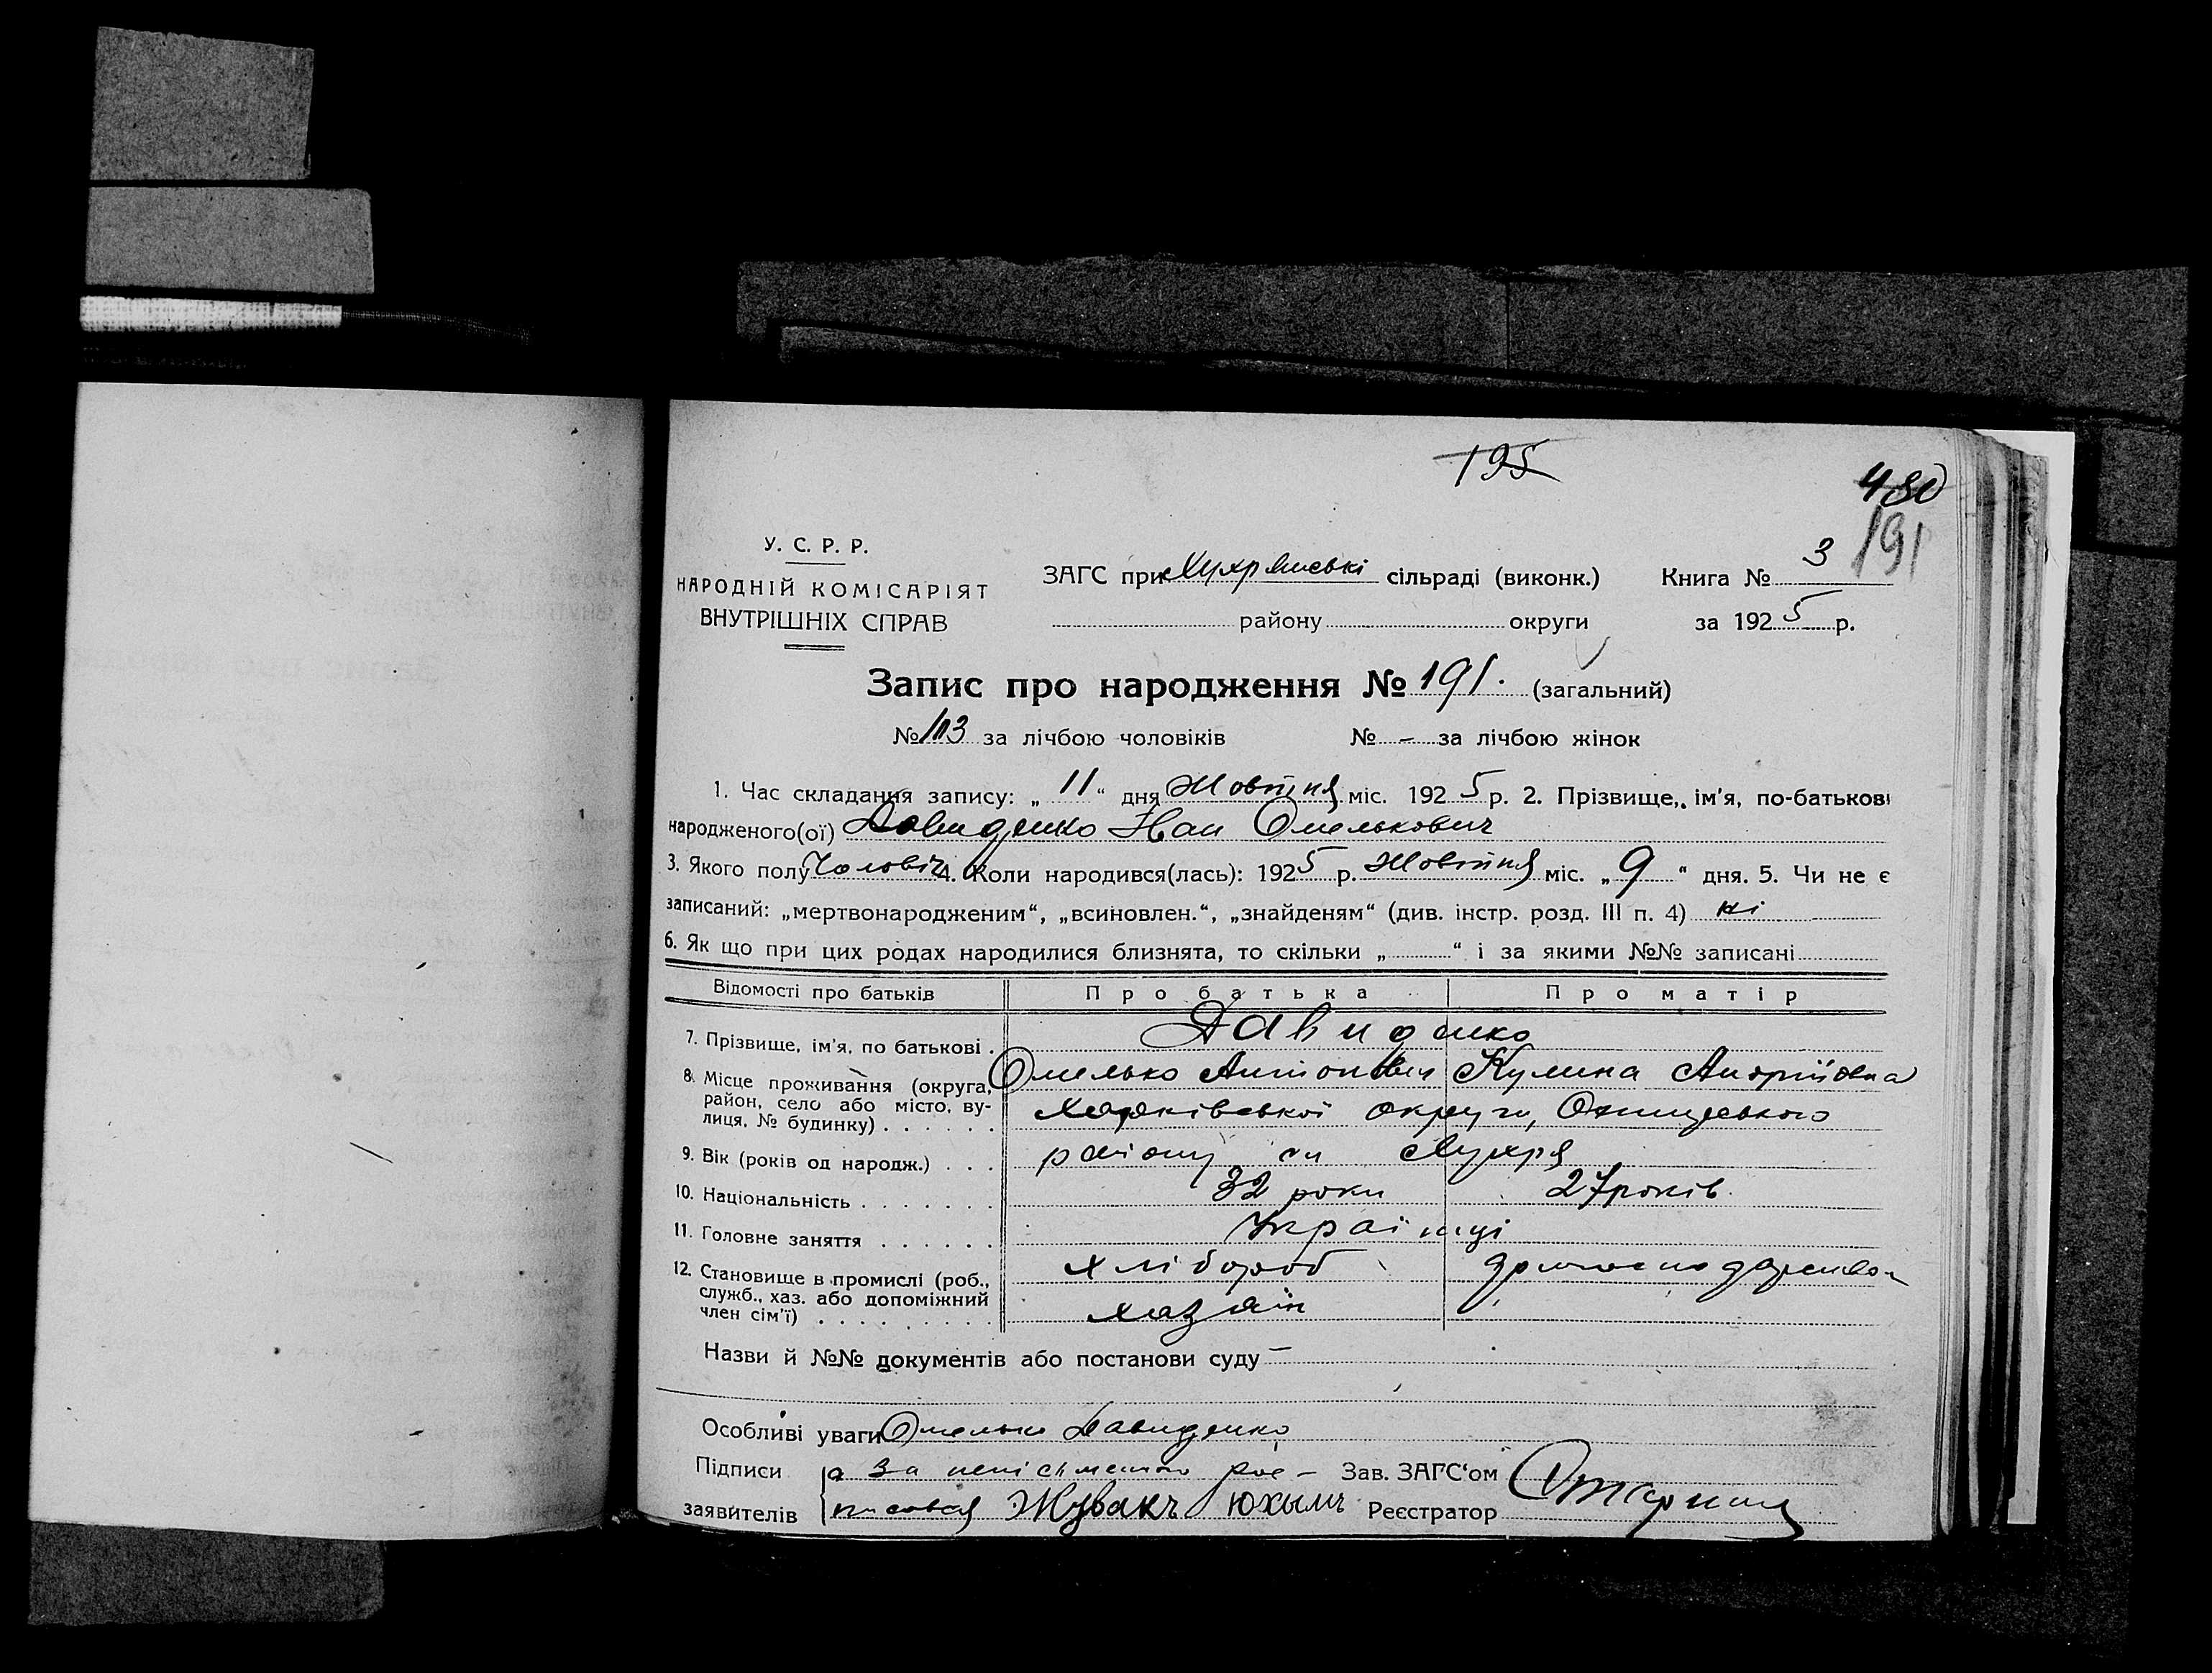 195
480
191
У. С. Р. Р.
НАРОДНІЙ КОМІСАРІЯТ
ВНУТРІШНІХ СПРАВ
ЗАГС при сільраді (виконк.) Книга № 3
району округи за 1925 р.
Запис про народження № 191. (загальний)
№ 113 за лічбою чоловіків № - за лічбою жінок
1. Час складання запису: „11“ дня Жовтня міс. 1925 р. 2. Прізвище, ім'я, по-батькові
народженого(ої) Давиденко Іван Омелькович
3. Якого полу Чоловіч. 4. Коли народився(лась): 1925 р. Жовтня міс. „9“ дня. 5. Чи не є
записаний: „мертвонародженим“, „всиновлен.“, „знайденям“ (див. інстр. розд. III п. 4) ні
6. Як що при цих родах народилися близнята, то скільки „ “ і за якими №№ записані
Відомості про батьків Про батька Про матір
7. Прізвище, ім'я, по батькові . Давиденко
Омелько Антонович Кулина Андріївна
8. Місце проживання (округа, район, село або місто, вулиця, № будинку) . . . . . . Харківської округи,
району Хухря
9. Вік (років од народж.) . . . 32 роки 27 років
10. Національність . . . . . . . Українці
11. Головне заняття . . . . . . хлібороб
12. Становище в промислі (роб., служб., хаз. або допоміжний член сім'ї) . . . . . . . . . хазяїн
Назви й №№ документів або постанови суду —
Особливі уваги Омелько Давиденко
Підписи а за неписьменного рос- Зав. ЗАГС'ом
заявителів писався Жувакъ Юхымъ Реєстратор